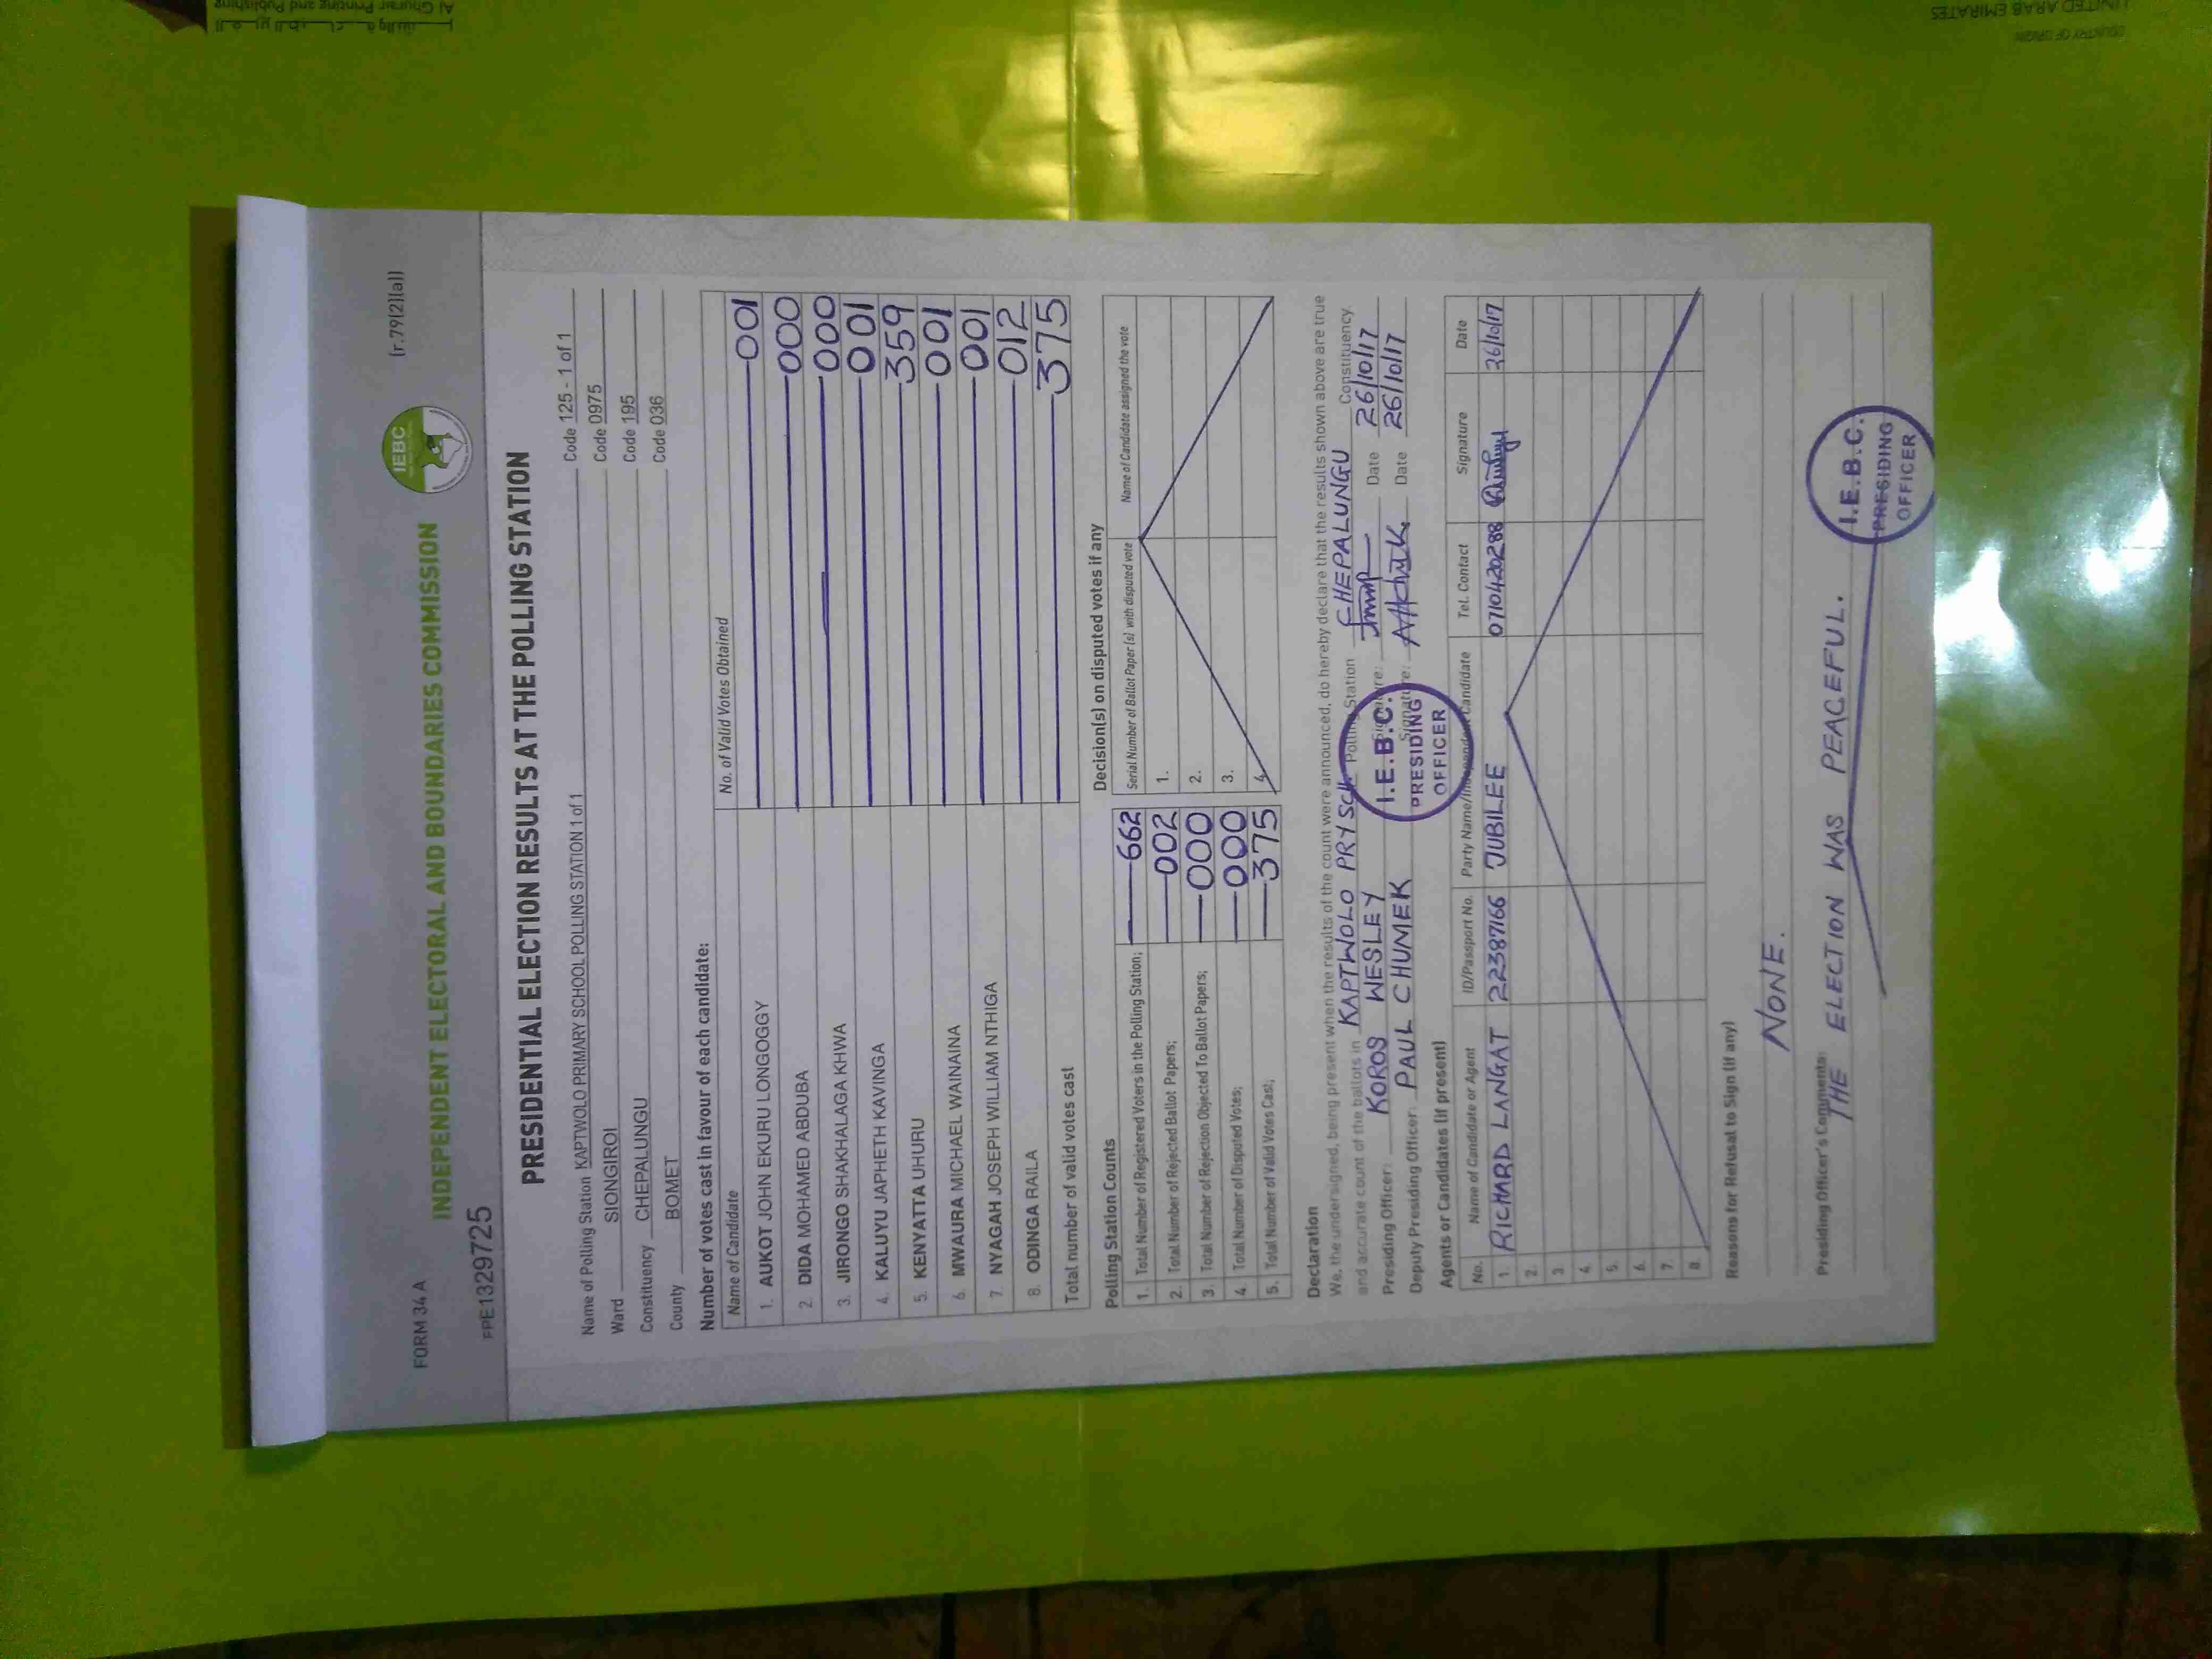 FORM 34 A
(r.79(2)(a))
INDEPENDENT ELECTORAL AND BOUNDARIES COMMISSION
IEBC
FPE1329725
PRESIDENTIAL ELECTION RESULTS AT THE POLLING STATION
Name of Polling Station KAPTWOLO PRIMARY SCHOOL POLLING STATION 1 of 1 Code 125 - 1 of 1
Ward SIONGIROI Code 0975
Constituency CHEPALUNGU Code 195
County BOMET Code 036
Number of votes cast in favour of each candidate:
Name of Candidate No. of Valid Votes Obtained
1. AUKOT JOHN EKURU LONGOGGY 001
2. DIDA MOHAMED ABDUBA 000
3. JIRONGO SHAKHALAGA KHWA 000
4. KALUYU JAPHETH KAVINGA 001
5. KENYATTA UHURU 359
6. MWAURA MICHAEL WAINAINA 001
7. NYAGAH JOSEPH WILLIAM NTHIGA 001
8. ODINGA RAILA 012
Total number of valid votes cast 375
Polling Station Counts
1. Total Number of Registered Voters in the Polling Station; 662
2. Total Number of Rejected Ballot Papers; 002
3. Total Number of Rejection Objected To Ballot Papers; 000
4. Total Number of Disputed Votes; 000
5. Total Number of Valid Votes Cast; 375
Decision(s) on disputed votes if any
Serial Number of Ballot Paper (s) with disputed vote Name of Candidate assigned the vote
1.
2.
3.
4.
Declaration
We, the undersigned, being present when the results of the count were announced, do hereby declare that the results shown above are true
and accurate count of the ballots in KAPTWOLO PRY SCH. Polling Station CHEPALUNGU Constituency.
Presiding Officer: KOROS WESLEY Signature: Date 26/10/17
Deputy Presiding Officer: PAUL CHUMEK Signature: Date 26/10/17
I.E.B.C.
PRESIDING
OFFICER
Agents or Candidates (if present)
No. Name of Candidate or Agent ID/Passport No. Party Name/Independent Candidate Tel. Contact Signature Date
1. RICHARD LANGAT 22387166 JUBILEE 0710420288 26/10/17
2.
3
4.
5.
6.
7.
8.
Reasons for Refusal to Sign (if any)
NONE.
Presiding Officer's Comments:
THE ELECTION WAS PEACEFUL.
I.E.B.C.
PRESIDING
OFFICER
Al Ghurair Printing and Publishing
COUNTRY OF ORIGIN
UNITED ARAB EMIRATES